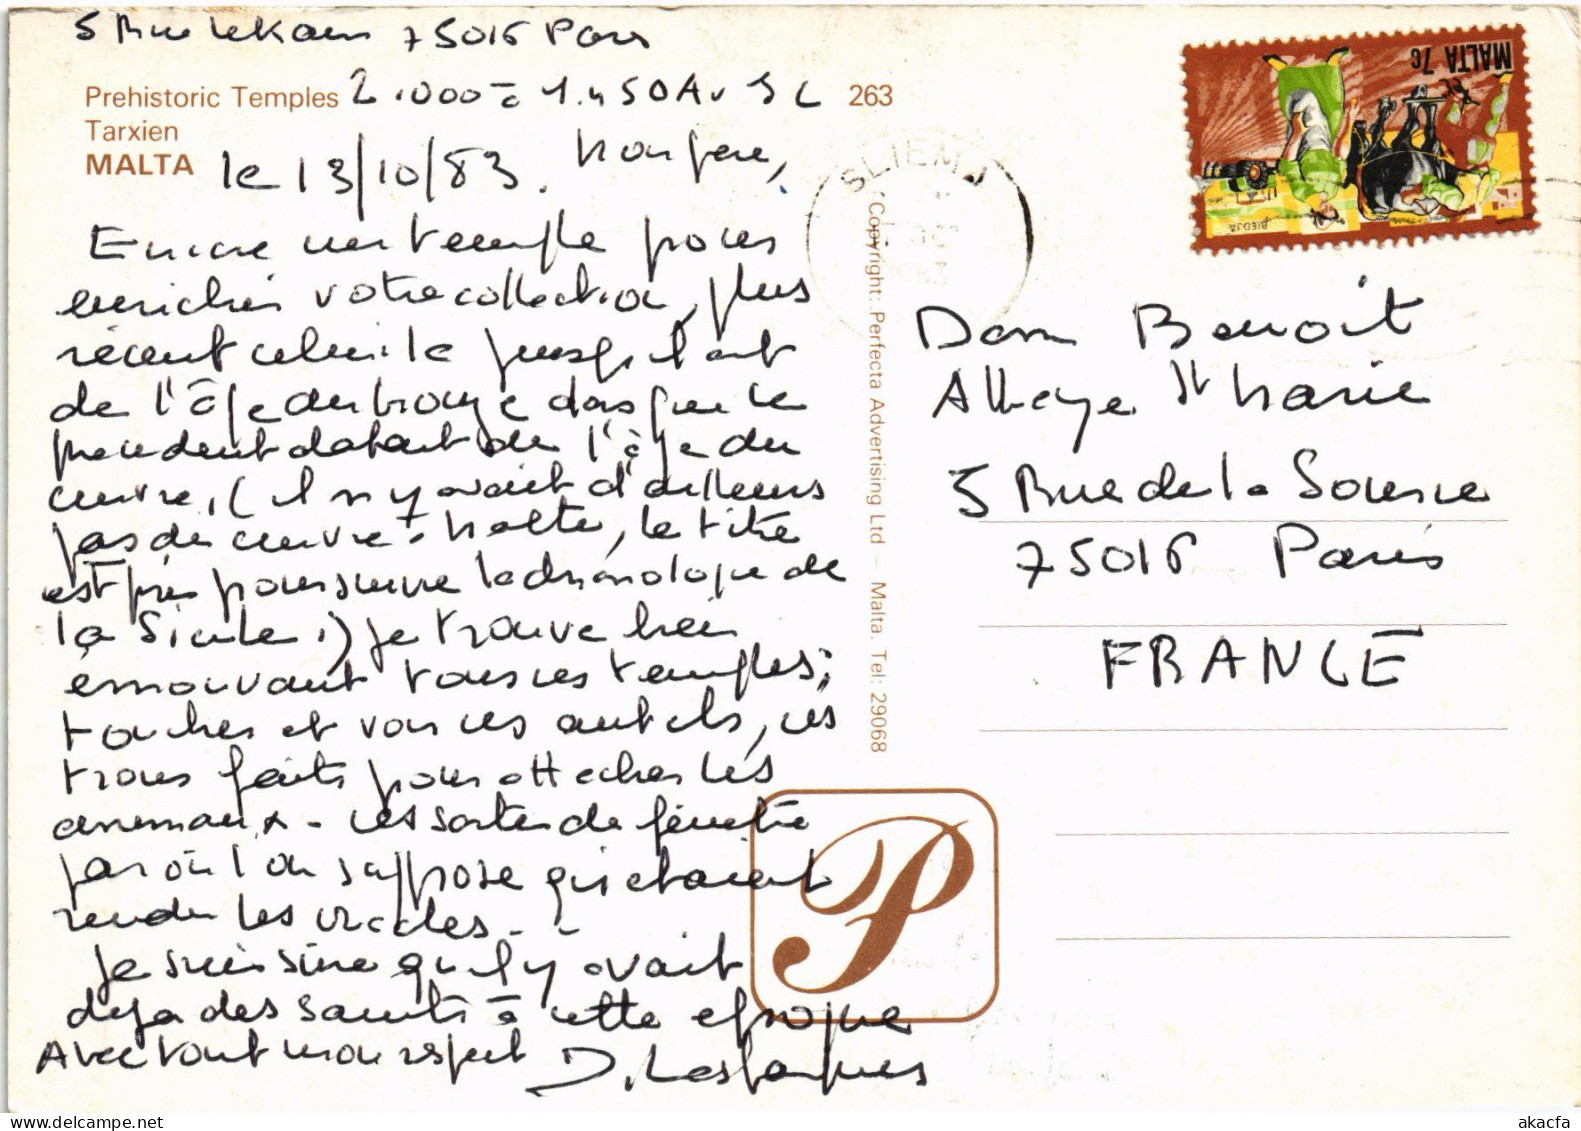 5 Rue Lekain 75016 Paris
Prehistoric Temples 2.000 à 1.450 Av JC 263
Tarxien
MALTA le 13/10/83. Mon père,
Encore un temple pour
enrichir votre collection, plus
récent celui-là puisqu'il
de l'âge du bronze alors que le
précédent datait de l'âge du
cuivre, (il n'y avait d'ailleurs
pas de cuivre à Malte, le titre
est pris pour suivre la chronologie de
la Sicile.) je trouve bien
émouvant tous ces temples;
toucher et voir ces autels, ces
trous faits pour attacher les
animaux - ces sortes de fenêtre
par où l'on suppose qu'étaient
rendus les oracles - -
je suis sûre qu'il y avait
déjà des saints à cette époque
Avec tout mon respect D. Lesjacques
MALTA 7c
BIEDJA
SLIEMA
Copyright: Perfecta Advertising Ltd – Malta. Tel: 29068
Dom Benoît
Abbaye Ste Marie
5 Rue de la Source
75016 Paris
FRANCE
P
www.ak-ansichtskarten.de
akacfa